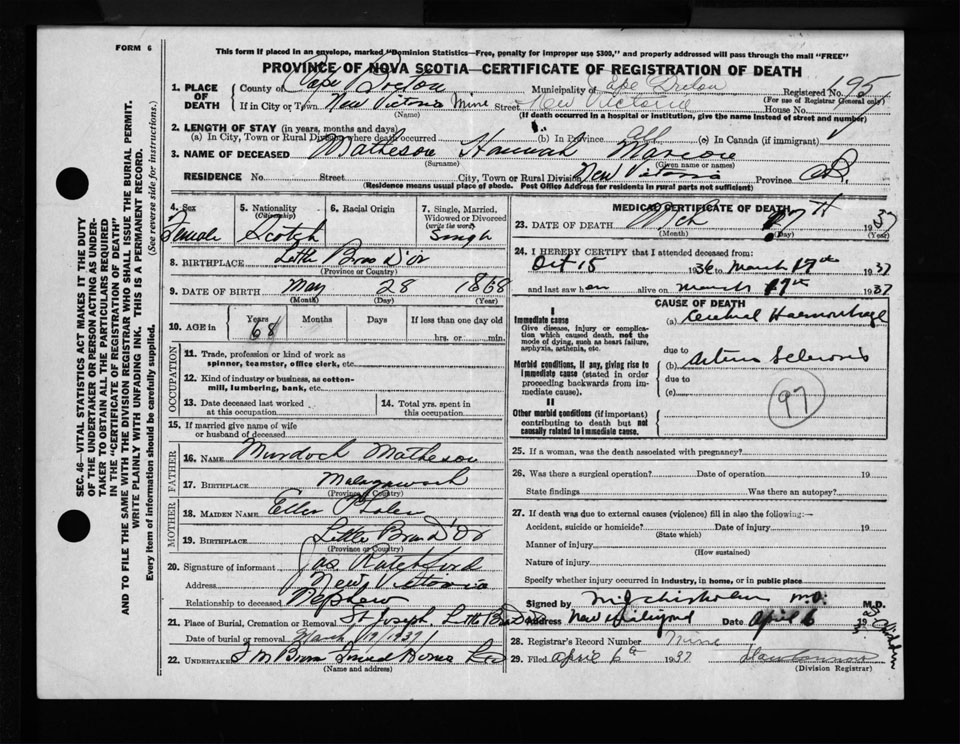 FORM 6
This form if placed in an envelope, marked "Dominion Statistics—Free, penalty for improper use $300," and properly addressed will pass through the mail "FREE"
PROVINCE OF NOVA SCOTIA—CERTIFICATE OF REGISTRATION OF DEATH
1. PLACE OF DEATH
County of Cape Breton Municipality of Cape Breton Registered No. 195
(For use of Registrar General only)
If in City or Town New Victoria Mine Street New Victoria House No.
(Name) (If death occurred in a hospital or institution, give the name instead of street and number)
2. LENGTH OF STAY (in years, months and days)
(a) In City, Town or Rural Division where death occurred (b) In Province (c) In Canada (if immigrant)
3. NAME OF DECEASED Matheson Hannah
(Surname) (Given name or names)
RESIDENCE No. Street City, Town or Rural Division New Victoria Province
(Residence means usual place of abode. Post Office Address for residents in rural parts not sufficient)
4. Sex Female
5. Nationality (Citizenship) Scotch
6. Racial Origin
7. Single, Married, Widowed or Divorced (write the word) Single
8. BIRTHPLACE Little Bras D'or
(Province or Country)
9. DATE OF BIRTH May 28 1868
(Month) (Day) (Year)
10. AGE in Years 68 Months Days If less than one day old
hrs. or min.
OCCUPATION
11. Trade, profession or kind of work as spinner, teamster, office clerk, etc.
12. Kind of industry or business, as cotton-mill, lumbering, bank, etc.
13. Date deceased last worked at this occupation
14. Total yrs. spent in this occupation
15. If married give name of wife or husband of deceased
FATHER
16. NAME Murdoch Matheson
17. BIRTHPLACE Malagawash
(Province or Country)
MOTHER
18. MAIDEN NAME Ellen
19. BIRTHPLACE Little Bras D'Or
(Province or Country)
20. Signature of informant Jas Ratchford
Address New Victoria
Relationship to deceased Nephew
21. Place of Burial, Cremation or Removal St Joseph Little Bras D'Or
Date of burial or removal March 19/1937
22. UNDERTAKER Funeral Home
(Name and address)
MEDICAL CERTIFICATE OF DEATH
23. DATE OF DEATH Mch 17 1937
(Month) (Day) (Year)
24. I HEREBY CERTIFY that I attended deceased from:
Oct 15 1936 to March 17th 1937
and last saw her alive on March 17th 1937
CAUSE OF DEATH
I
Immediate cause (a) Cerebral Haemorrhage
Give disease, injury or complication which caused death, not the mode of dying, such as heart failure, asphyxia, asthenia, etc.
due to
Morbid conditions, if any, giving rise to immediate cause (stated in order proceeding backwards from immediate cause).
(b) Arterio Sclerosis
due to
(c)
97
II
Other morbid conditions (if important) contributing to death but not causally related to immediate cause.
25. If a woman, was the death associated with pregnancy?
26. Was there a surgical operation? Date of operation 19
State findings Was there an autopsy?
27. If death was due to external causes (violence) fill in also the following:—
Accident, suicide or homicide? Date of injury 19
(State which)
Manner of injury
(How sustained)
Nature of injury
Specify whether injury occurred in industry, in home, or in public place
Signed by Chisholm M.D. M.D.
Address New Waterford Date April 6 193
28. Registrar's Record Number Nine
29. Filed April 6th 1937
(Division Registrar)
SEC. 46—VITAL STATISTICS ACT MAKES IT THE DUTY
OF THE UNDERTAKER OR PERSON ACTING AS UNDER-
TAKER TO OBTAIN ALL THE PARTICULARS REQUIRED
IN THE "CERTIFICATE OF REGISTRATION OF DEATH"
AND TO FILE THE SAME WITH THE DIVISION REGISTRAR WHO SHALL ISSUE THE BURIAL PERMIT.
WRITE PLAINLY WITH UNFADING INK. THIS IS A PERMANENT RECORD.
Every item of information should be carefully supplied. (See reverse side for instructions.)